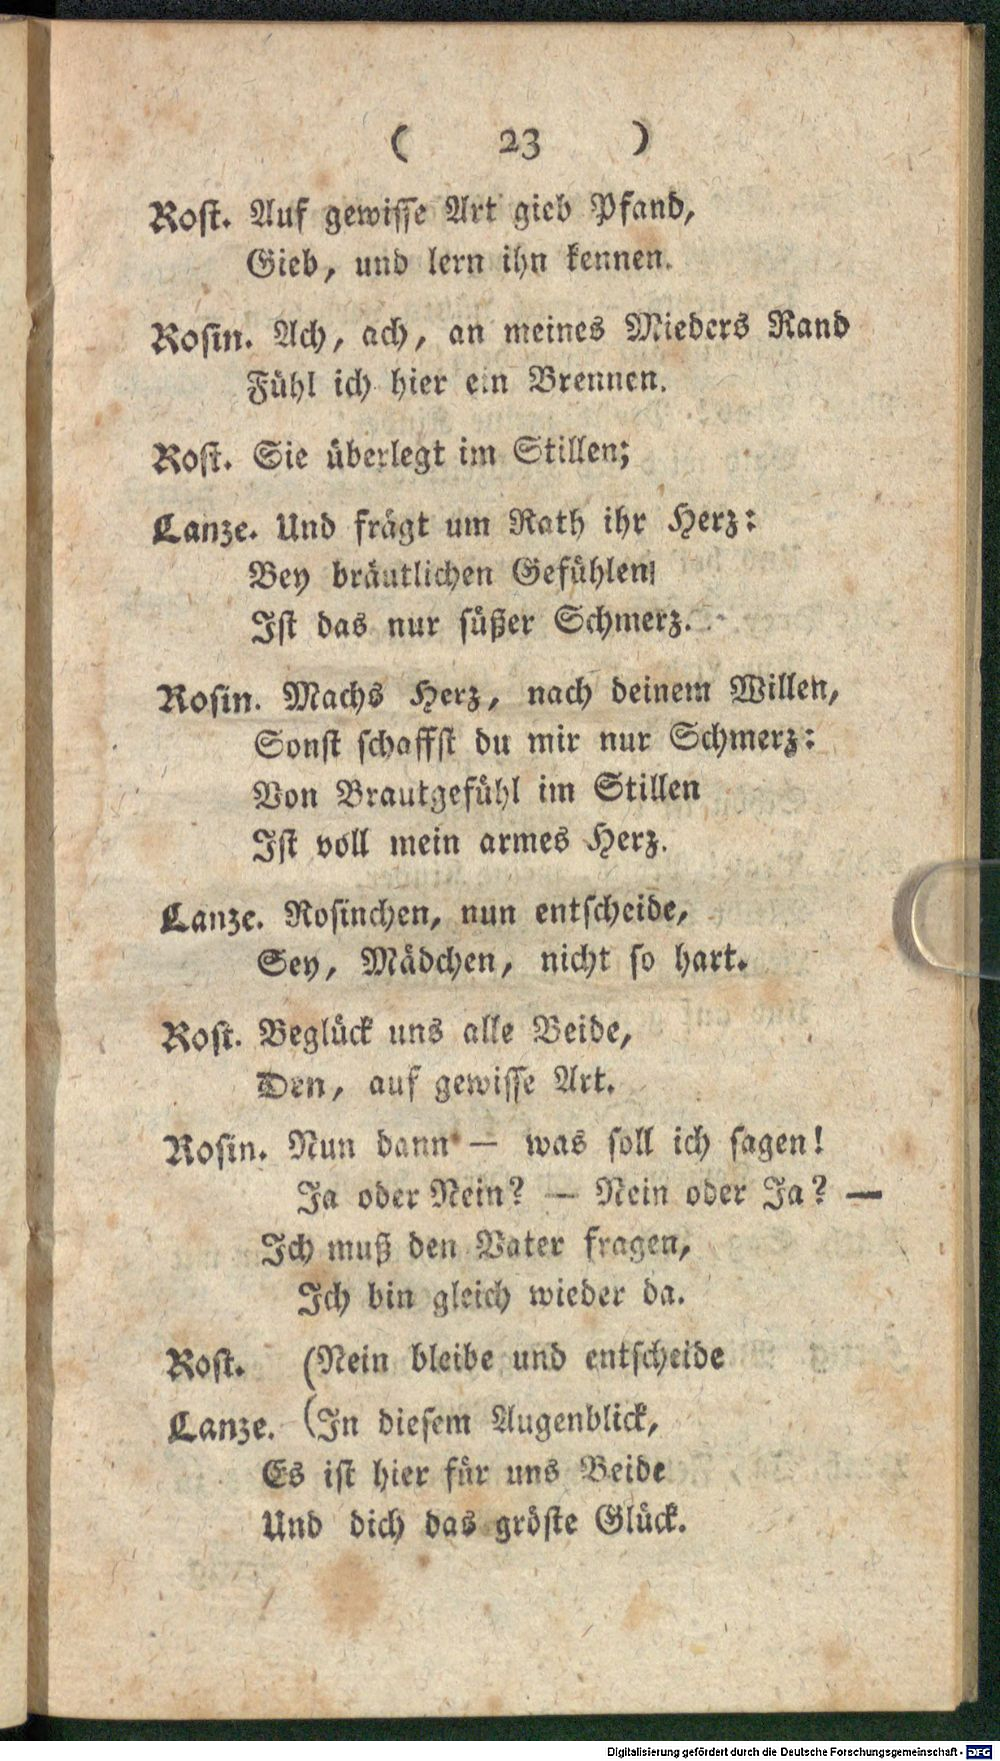 ( 23 )
Rost. Auf gewisse Art gieb Pfand,
Gieb, und lern ihn kennen.
Rosin. Ach, ach, an meines Mieders Rand
Fühl ich hier ein Brennen.
Rost. Sie überlegt im Stillen;
Lanze. Und frägt um Rath ihr Herz:
Bey bräutlichen Gefühlen
Ist das nur süßer Schmerz.
Rosin. Machs Herz, nach deinem Willen,
Sonst schaffst du mir nur Schmerz:
Von Brautgefühl im Stillen
Ist voll mein armes Herz.
Lanze. Rosinchen, nun entscheide,
Sey, Mädchen, nicht so hart.
Rost. Beglück uns alle Beide,
Den, auf gewisse Art.
Rosin. Nun dann — was soll ich sagen!
Ja oder Nein? — Nein oder Ja? —
Ich muß den Vater fragen,
Ich bin gleich wieder da.
Rost. (Nein bleibe und entscheide
Lanze. (In diesem Augenblick,
Es ist hier für uns Beide
Und dich das gröste Glück.
Digitalisierung gefördert durch die Deutsche Forschungsgemeinschaft - DFG